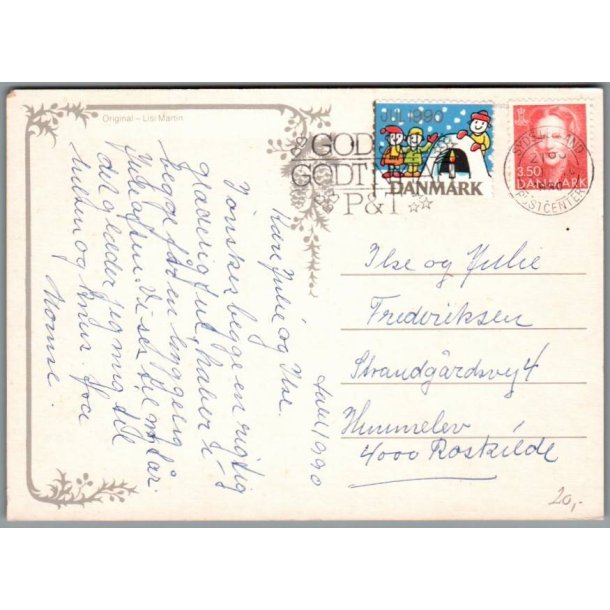 Original – Lisi Martin
JUL 1990
DANMARK
GOD
GODT
P&T
3.50
DANMARK
POSTCENTER
Ilse og Julie
Frederiksen
Strandgårdsvej 4
Himmelev
4000 Roskilde
Julen 1990
Kære Julie og Ilse.
I ønskes begge en rigtig
glædelig jul, håber I
begge får en hyggelig
Juleaften. Vi ses
det glæder jeg mig til
knus. fra
20,-